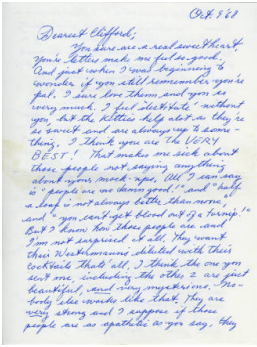 Oct 9 '68
Dearest Clifford;
You sure are a real sweetheart.
Your letters make me feel so good.
And just when I was beginning to
wonder if you still remember you're
pal. I sure love them and you so
very much. I feel destitute without
you, but the Kitties help alot as they're
so sweet and are always up to some-
thing. I think you are the VERY
BEST! That makes me sick about
those people not saying anything
about your mock-ups. All I can say
is "people are no damn good!" and "half
a loaf is not always better than none,"
and "you can't get blood out of a turnip!"
But I know how those people are and
I'm not surprised at all. They want
their Westermanns diluted with their
cocktails thats all. I think the one you
sent me, including the other 2 are just
beautiful, and very mysterious. No-
body else works like that. They are
very strong and I suppose if those
people are as apathetic as you say, they